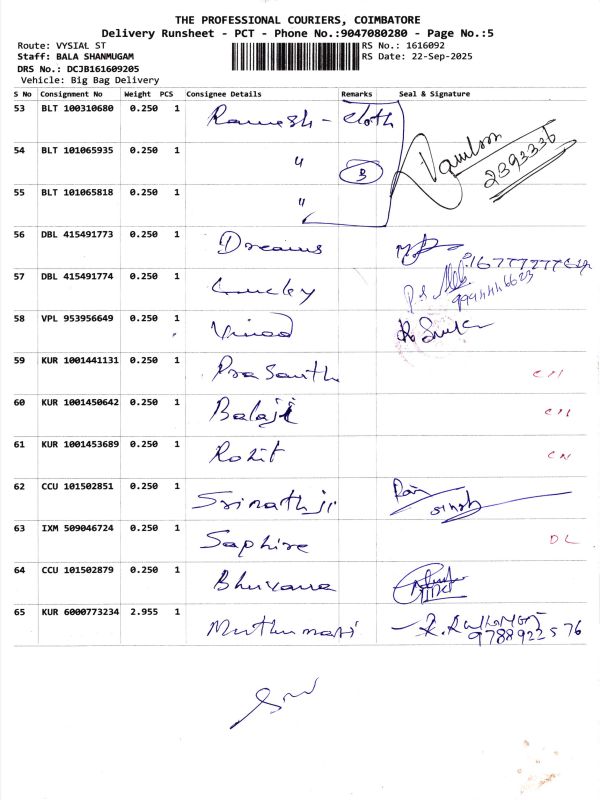 THE PROFESSIONAL COURIERS, COIMBATORE
Delivery Runsheet - PCT - Phone No.:9047080280 - Page No.:5
Route: VYSIAL ST RS No.: 1616092
Staff: BALA SHANMUGAM RS Date: 22-Sep-2025
DRS No.: DCJB161609205
Vehicle: Big Bag Delivery
S No Consignment No Weight PCS Consignee Details Remarks Seal & Signature
53 BLT 100310680 0.250 1 Ramesh - cloth
54 BLT 101065935 0.250 1 " 3 2393336
55 BLT 101065818 0.250 1 "
56 DBL 415491773 0.250 1 Dreams
57 DBL 415491774 0.250 1 Luckey 9944446623
58 VPL 953956649 0.250 1 Vinod
59 KUR 1001441131 0.250 1 Prasanth CN
60 KUR 1001450642 0.250 1 Balaji CN
61 KUR 1001453689 0.250 1 Rohit CN
62 CCU 101502851 0.250 1 Srinathji
63 IXM 509046724 0.250 1 Saphire DL
64 CCU 101502879 0.250 1 Bhuvana
65 KUR 6000773234 2.955 1